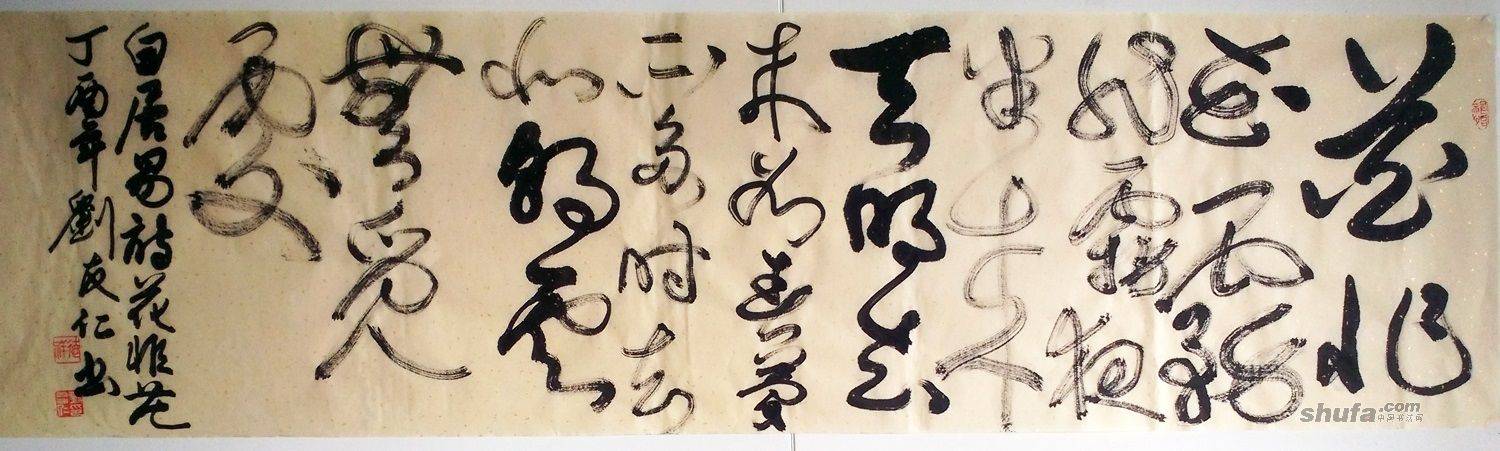 花非
花霧
非霧夜
半来
天明去
来如春夢
不多时去
似朝雲
無覓
處
白居易诗花非花
丁酉年劉友仁书
shufa.com
中国书法网